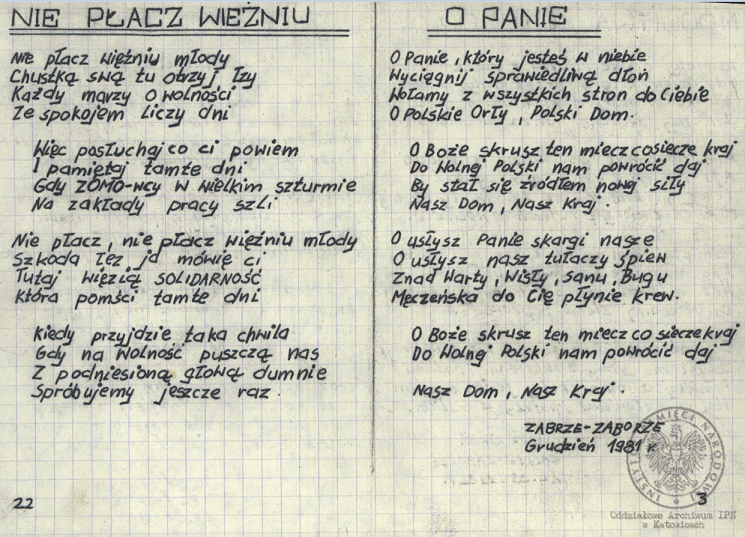 NIE PŁACZ WIEŹNIU
Nie płacz więźniu młody
Chustką swą tu otrzyj łzy
Każdy marzy o wolności
Ze spokojem liczy dni
Więc posłuchaj co ci powiem
I pamiętaj tamte dni
Gdy ZOMO-wcy w wielkim szturmie
Na zakłady pracy szli
Nie płacz, nie płacz więźniu młody
Szkoda łez ja mówię ci
Tutaj więzią SOLIDARNOŚĆ
Która pomści tamte dni
Kiedy przyjdzie taka chwila
Gdy na wolność puszczą nas
Z podniesioną głową dumnie
Spróbujemy jeszcze raz.
22
O PANIE
O Panie, który jesteś w niebie
Wyciągnij sprawiedliwą dłoń
Wołamy z wszystkich stron do Ciebie
O Polskie Orły, Polski Dom.
O Boże skrusz ten miecz co siecze kraj
Do Wolnej Polski nam powrócić daj
By stał się źródłem nowej siły
Nasz Dom, Nasz Kraj.
O usłysz Panie skargi nasze
O usłysz nasz tułaczy śpiew
Znad Warty, Wisły, Sanu, Bugu
Męczeńska do Cię płynie krew.
O Boże skrusz ten miecz co siecze kraj
Do Wolnej Polski nam powrócić daj
Nasz Dom, Nasz Kraj.
ZABRZE-ZABORZE
Grudzień 1981 r.
3
INSTYTUT PAMIĘCI NARODOWEJ
Oddziałowe Archiwum IPN
w Katowicach